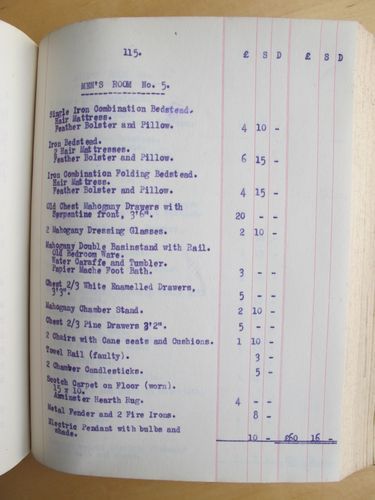 115.
£ S D £ S D
MEN'S ROOM No. 5.
Single Iron Combination Bedstead.
Hair Mattress.
Feather Bolster and Pillow. 4 10 -
Iron Bedstead.
2 Hair Mattresses.
Feather Bolster and Pillow. 6 15 -
Iron Combination Folding Bedstead.
Hair Mattress.
Feather Bolster and Pillow. 4 15 -
Old Chest Mahogany Drawers with
Serpentine front, 3'6". 20 - -
2 Mahogany Dressing Glasses. 2 10 -
Mahogany Double Basinstand with Rail.
Old Bedroom Ware.
Water Caraffe and Tumbler.
Papier Mache Foot Bath. 3 - -
Chest 2/3 White Enamelled Drawers,
3'3". 5 - -
Mahogany Chamber Stand. 2 10 -
Chest 2/3 Pine Drawers 3'2". 5 - -
2 Chairs with Cane seats and Cushions. 1 10 -
Towel Rail (faulty). 3 -
2 Chamber Candlesticks. 5 -
Scotch Carpet on Floor (worn).
15 x 10.
Axminster Hearth Rug. 4 - -
Metal Fender and 2 Fire Irons. 8 -
Electric Pendant with bulbs and
shade. 10 - £60 16 -